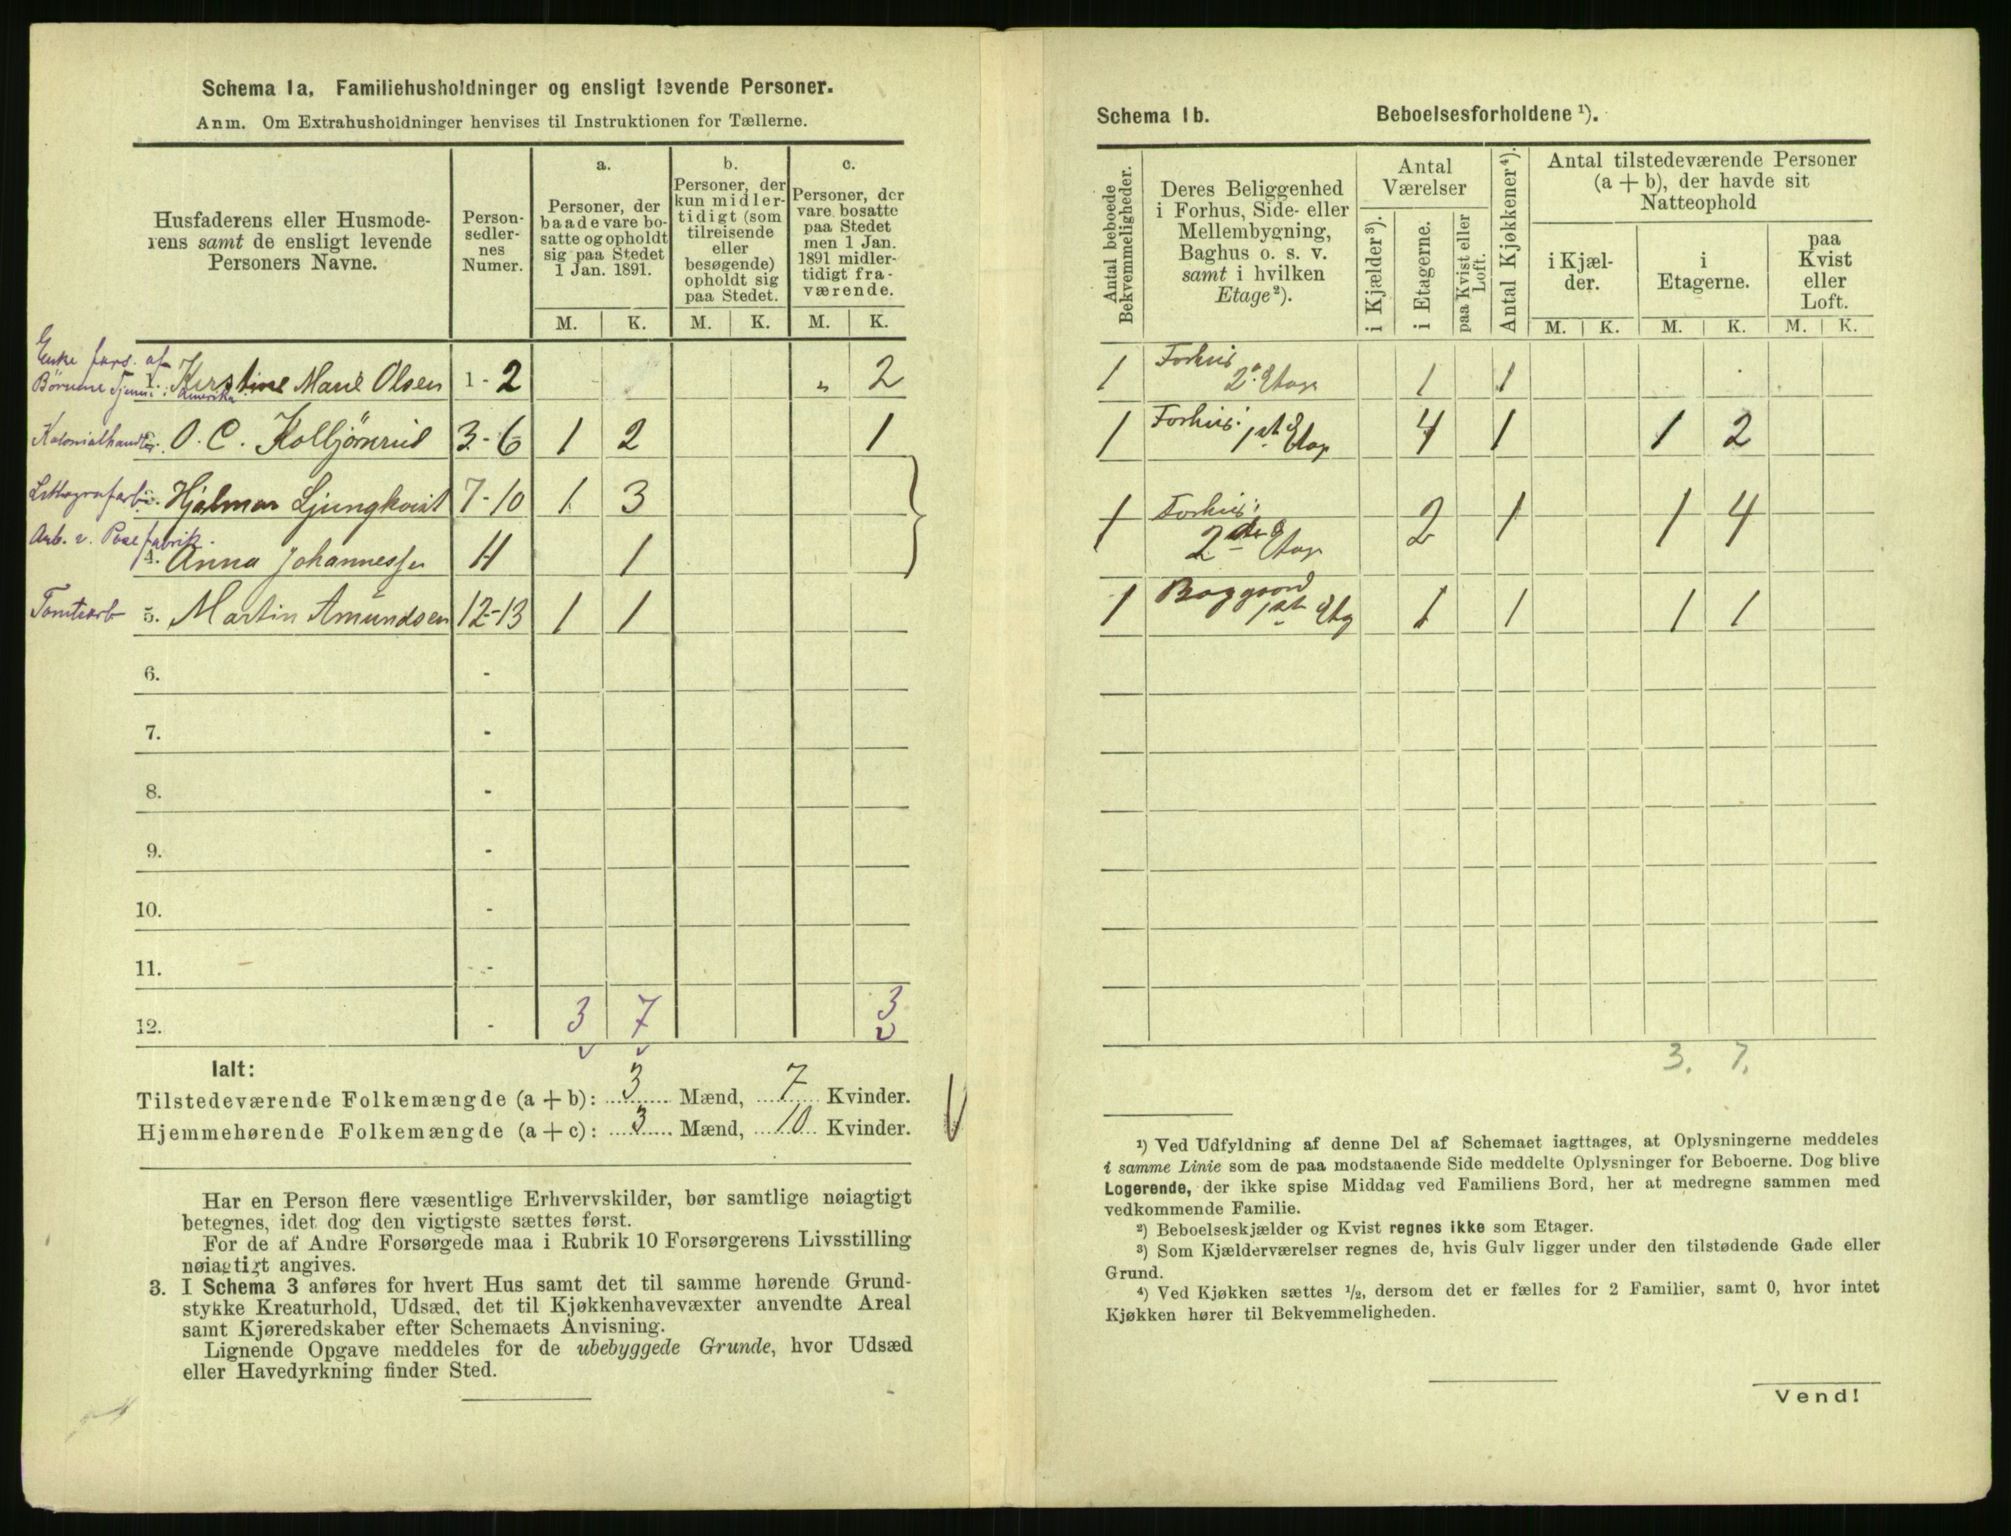 Schema 1a. Familiehusholdninger og ensligt levende Personer.
Anm. Om Extrahusholdninger henvises til Instruktionen for Tællerne.
Husfaderens eller Husmode-
rens samt de ensligt levende
Personers Navne.
Person-
sedler-
nes
Numer.
a.
Personer, der
baade vare bo-
satte og opholdt
sig paa Stedet
1 Jan. 1891.
b.
Personer, der
kun midler-
tidigt (som
tilreisende
eller
besøgende)
opholdt sig
paa Stedet.
c.
Personer, der
vare bosatte
paa Stedet
men 1 Jan.
1891 midler-
tidigt fra-
værende.
M. K. M. K. M. K.
Enke fors. af
Børnene
Amerika
1. Kirstine Marie Olsen 1 - 2 " 2
Kolonialhandler
2. O. C. Kolbjørnrud 3 - 6 1 2 1
Lithografarb.
3. Hjalmar Ljungkvist 7 - 10 1 3
Arb. v. Posefabrik.
4. Anna Johannessen 11 1
Tomtearb
5. Martin Amundsen 12 - 13 1 1
6. -
7. -
8. -
9. -
10. -
11. -
12. - 3 7 3
Ialt:
Tilstedeværende Folkemængde (a + b): 3 Mænd, 7 Kvinder.
Hjemmehørende Folkemængde (a + c): 3 Mænd, 10 Kvinder.
Har en Person flere væsentlige Erhvervskilder, bør samtlige nøiagtigt
betegnes, idet dog den vigtigste sættes først.
For de af Andre Forsørgede maa i Rubrik 10 Forsørgerens Livsstilling
nøiagtigt angives.
3. I Schema 3 anføres for hvert Hus samt det til samme hørende Grund-
stykke Kreaturhold, Udsæd, det til Kjøkkenhavevæxter anvendte Areal
samt Kjøreredskaber efter Schemaets Anvisning.
Lignende Opgave meddeles for de ubebyggede Grunde, hvor Udsæd
eller Havedyrkning finder Sted.
Schema 1b. Beboelsesforholdene ¹).
Antal beboede
Bekvemmeligheder.
Deres Beliggenhed
i Forhus, Side- eller
Mellembygning,
Baghus o. s. v.
samt i hvilken
Etage ²).
Antal
Værelser
i Kjælder ³).
i Etagerne.
paa Kvist eller
Loft.
Antal Kjøkkener ⁴).
Antal tilstedeværende Personer
(a + b), der havde sit
Natteophold
i Kjæl-
der.
i
Etagerne.
paa
Kvist
eller
Loft.
M. K. M. K. M. K.
1 Forhus 2. Etage 1 1
1 Forhus. 1ste Etage 4 1 1 2
1 Forhus. 2den Etage 2 1 1 4
1 Baggaard 1st Etg 1 1 1 1
3. 7.
¹) Ved Udfyldning af denne Del af Schemaet iagttages, at Oplysningerne meddeles
i samme Linie som de paa modstaaende Side meddelte Oplysninger for Beboerne. Dog blive
Logerende, der ikke spise Middag ved Familiens Bord, her at medregne sammen med
vedkommende Familie.
²) Beboelseskjælder og Kvist regnes ikke som Etager.
³) Som Kjælderværelser regnes de, hvis Gulv ligger under den tilstødende Gade eller
Grund.
⁴) Ved Kjøkken sættes ½, dersom det er fælles for 2 Familier, samt 0, hvor intet
Kjøkken hører til Bekvemmeligheden.
Vend!